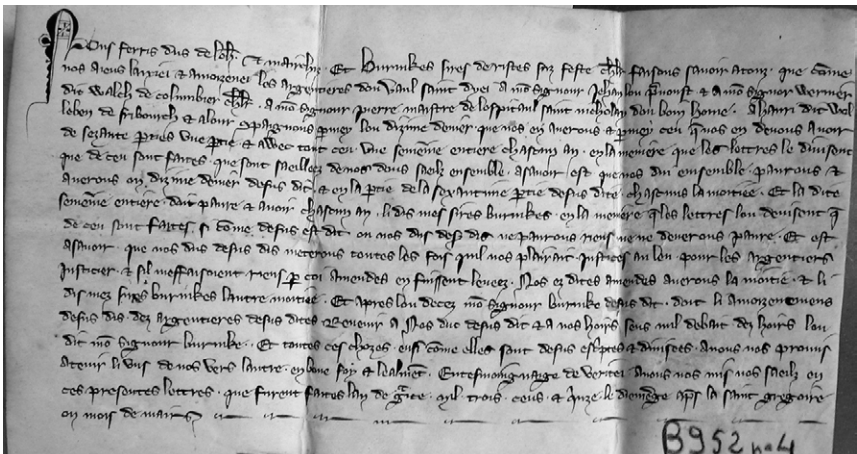 Nous ferris dus de loh̄r. & marchis. Et Burnikes sires de ristes saz feste ch̄lr faisons savoir a touz. que cōme
nos aiens laixiei & amoizenei les argentieres don vaul saint dyei a mō signour Jehan lou p̄voust & a mō signor werner
dit walch de columbier ch̄lr. a mō signour pierre maistre de lospitaul saint nicholay don bom home. A hanri dit wol
leben de fribourch & a lour cōpaignons p̄mey lou dizime denier que nos en averons & p̄mey ceu q̄ nos en devons avoir
de sexante p̄ties une p̄tie & avec tout ceu une semēne entiere chascun an. en la meniere que les lettres le devisent
que de ceu sont faites. que sont saiellees de nos dous saielz ensemble. asavoir est que nos dui ensemble panrons &
averons on dizime denier desus dit. & en la p̄tie de la sexantime p̄tie desus dite. chascuns la moitiee. Et la dite
semēne entiere. doit panre & avoir chascun an. li dis mes sires burnikes. en la meniere q̄ les lettres lou devisent q̄
de ceu sont faites. si cōme desus est dit. on nos dus desus dis ne panrons riens ne ne deverons panre. Et est
asavoir. que nos dus desus dis metterons toutes les fois quil nos plairait. justices au leu. pour les argentiers
justicier. & sil meffaisoient riens p̄ coi amendes en fuissent levees. Nos ez dites amendes averons la moitie. & li
dis mez sires burnikes lautre moitiee. Et apres lou decez mō signour burnike desus dit. doit li amoizenemens
desus dis. dez argentieres desus dites. Revenir a Nos duc desus dit & a nos hoirs sens nul debat dez hoirs lou
dit mō signour burnike. Et toutes ces chozes. ensi cōme elles sont desus esc̄ptes & divisees. Avons nos promis
a tenir li uns de nos vers lautre. en bone foy & lealmēt. En tesmoingnaige de veritei. avons nos mis nos saielz en
ces presentes lettres. que furent faites lan de grāce. mil. trois. cens. & quize. le diemēge ap̄s la saint gregoire
on mois de mairs
B952 no 4